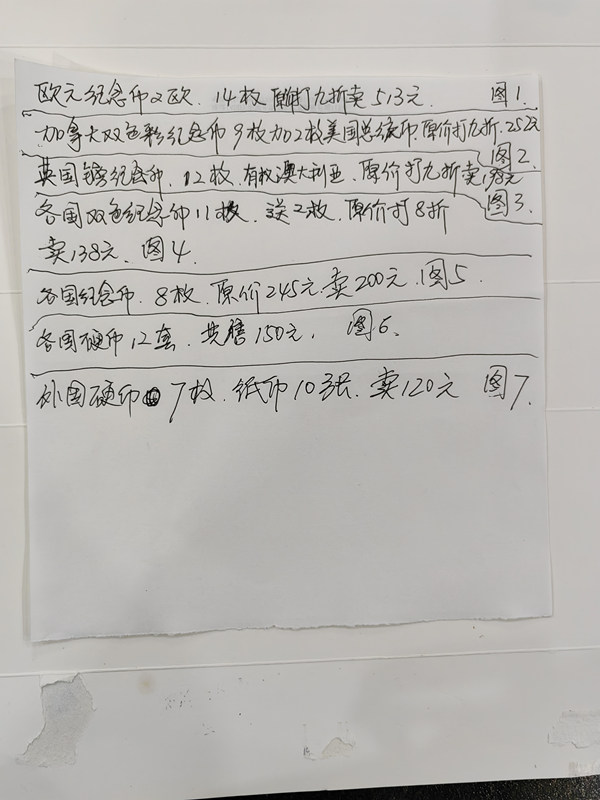 欧元纪念币2欧.14枚原价打九折卖513元. 图1.
加拿大双色彩纪念币9枚加2枚美国总统币.原价打九折.252元
图2.
英国镑纪念币.12枚.有枚澳大利亚.原价打九折卖198元
图3.
各国双色纪念币11枚.送2枚.原价打8折
卖138元.图4.
各国纪念币.8枚.原价245元.卖200元.图5.
各国硬币12套.共售150元. 图6.
外国硬币7枚.纸币10张.卖120元 图7.